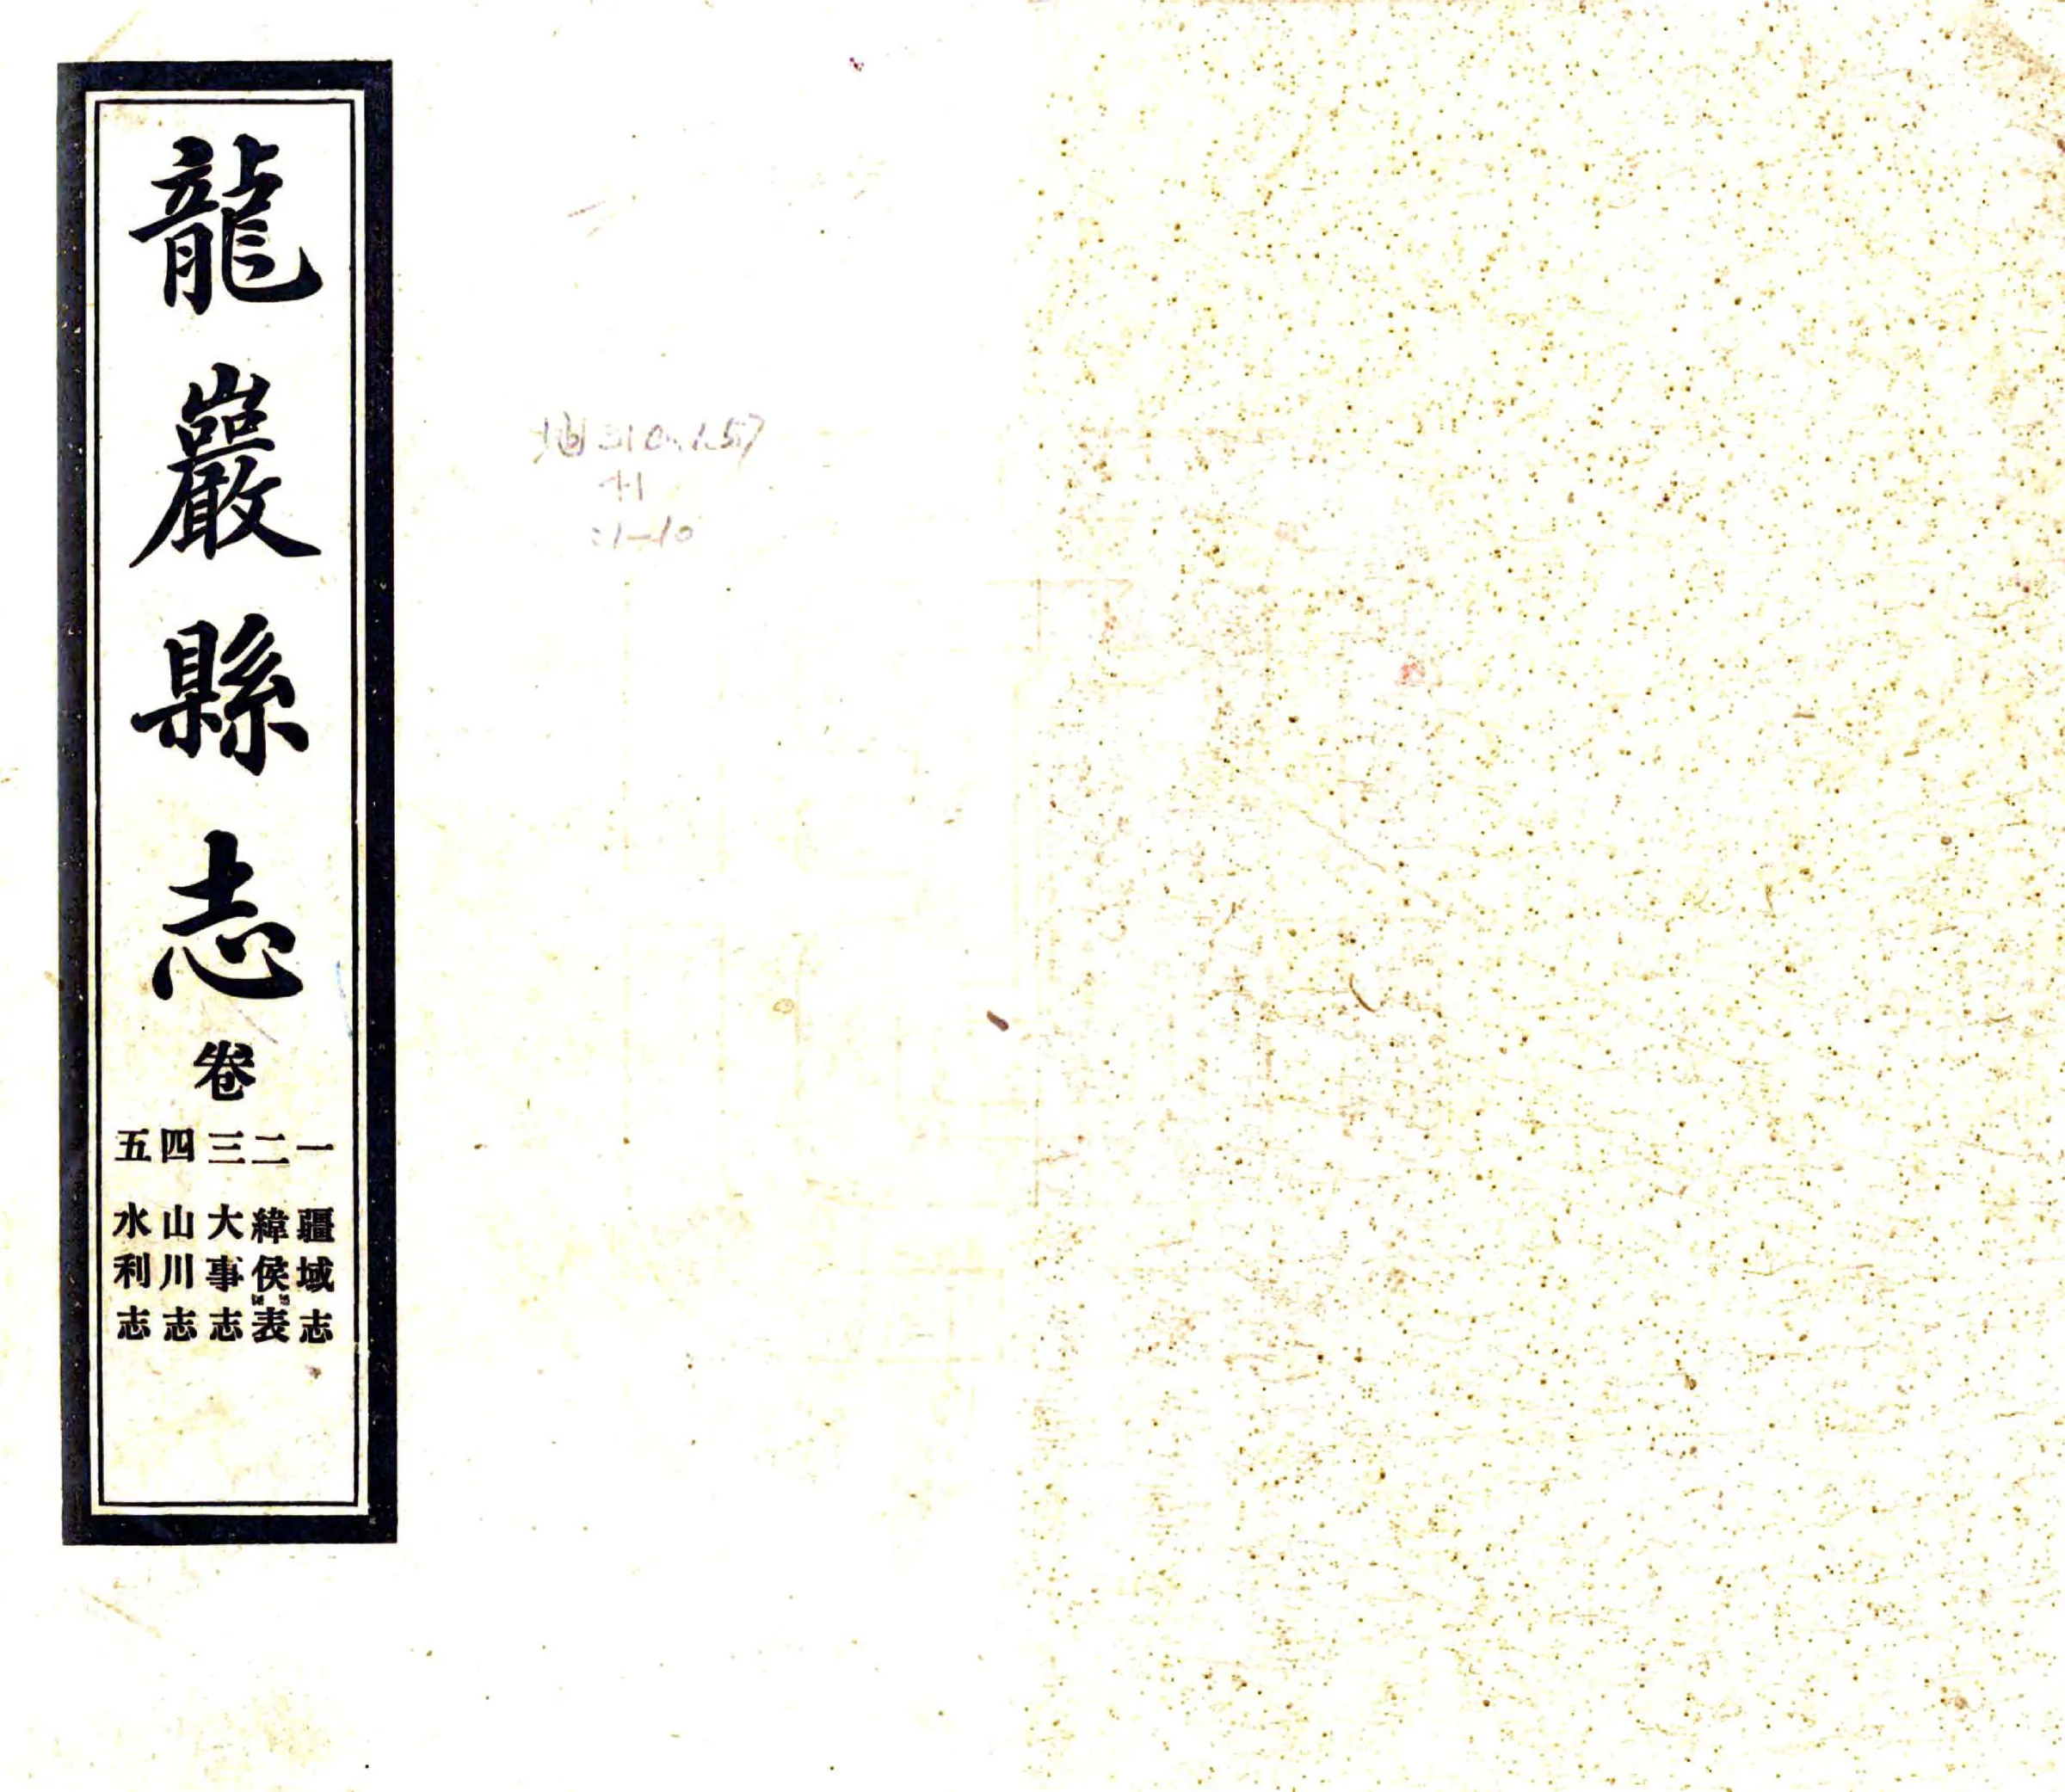 龍巖縣志
卷
一 疆域志
二 緯侯表
三 大事志
四 山川志
五 水利志
:1-10